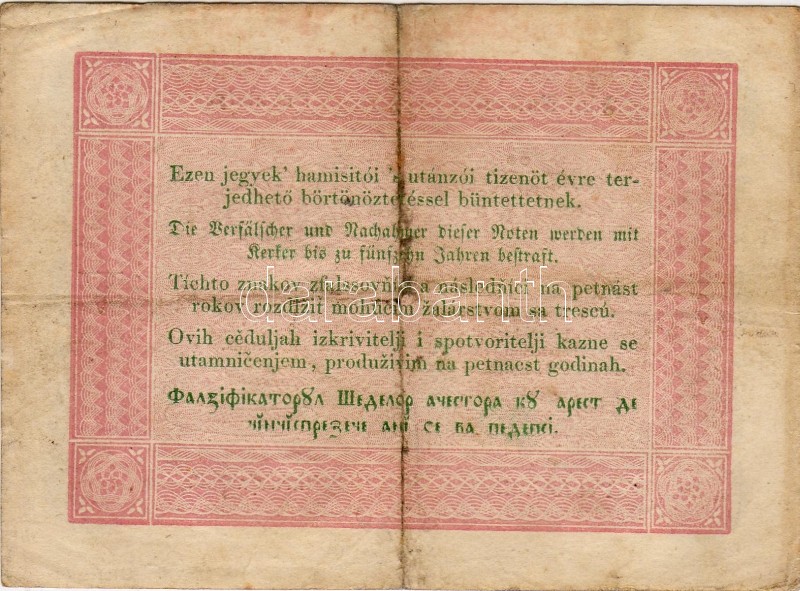 Ezen jegyek' hamisitói 's utánzói tizenöt évre ter-
jedhető börtönöztetéssel büntettetnek.
Die Verfälscher und Nachahmer dieser Noten werden mit
Kerker bis zu fünfzehn Jahren bestraft.
Tíchto znakov zfalssovňíci a následňíci na petnást
rokov rozdĺžiť mohúcím žalárstvom sa trescú.
darabanth
Ovih cèduljah izkrivitelji i spotvoritelji kazne se
utamničenjem, produživim na petnaest godinah.
Фалзіфікаторꙋл Шеделор ачестора кꙋ арест де
чінчіспрезече ані се ва педепсі.